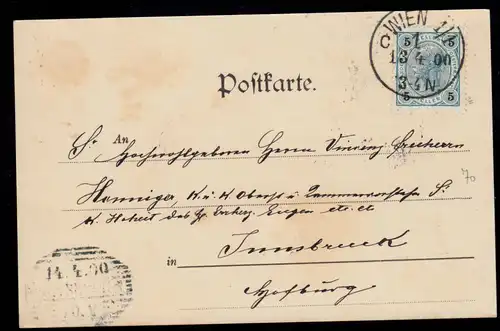 WIEN 1/1
C 1
13 4 00
3-4N
5 5
5 5
Postkarte.
An
Sr Hochwohlgeboren Herrn Vincenz Freiherrn
Henniger, K. u. K. Oberst u. Kammervorsteher Sr
K. Hoheit des Hr. Erzherz. Eugen etc. etc
in Innsbruck
Hofburg
70
14.4.00